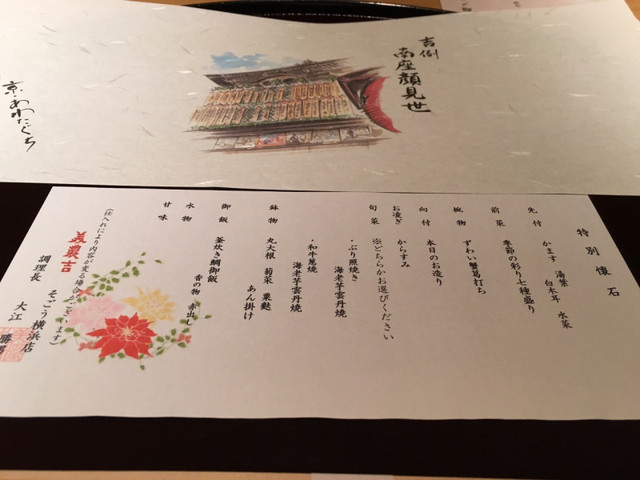 吉例
南座顔見世
京・あわたぐち
特別懐石
先付 かます 湯葉 白木耳 水菜
前菜 季節の彩り七種盛り
椀物 ずわい蟹葛打ち
向付 本日のお造り
お凌ぎ からすみ
旬菜 ※どちらかお選びください
・ぶり照焼き
海老芋雲丹焼
・和牛葱焼
海老芋雲丹焼
鉢物 丸大根 菊菜 粟麩
あん掛け
御飯 釜炊き鯛御飯
香の物 赤出し
水物
甘味
(仕入れにより内容が変る場合がございます)
美濃吉
そごう横浜店
調理長 大江